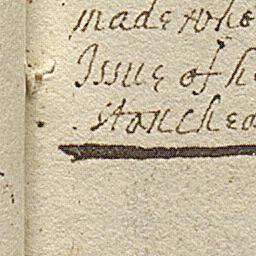 made who
Issue of h
stanched